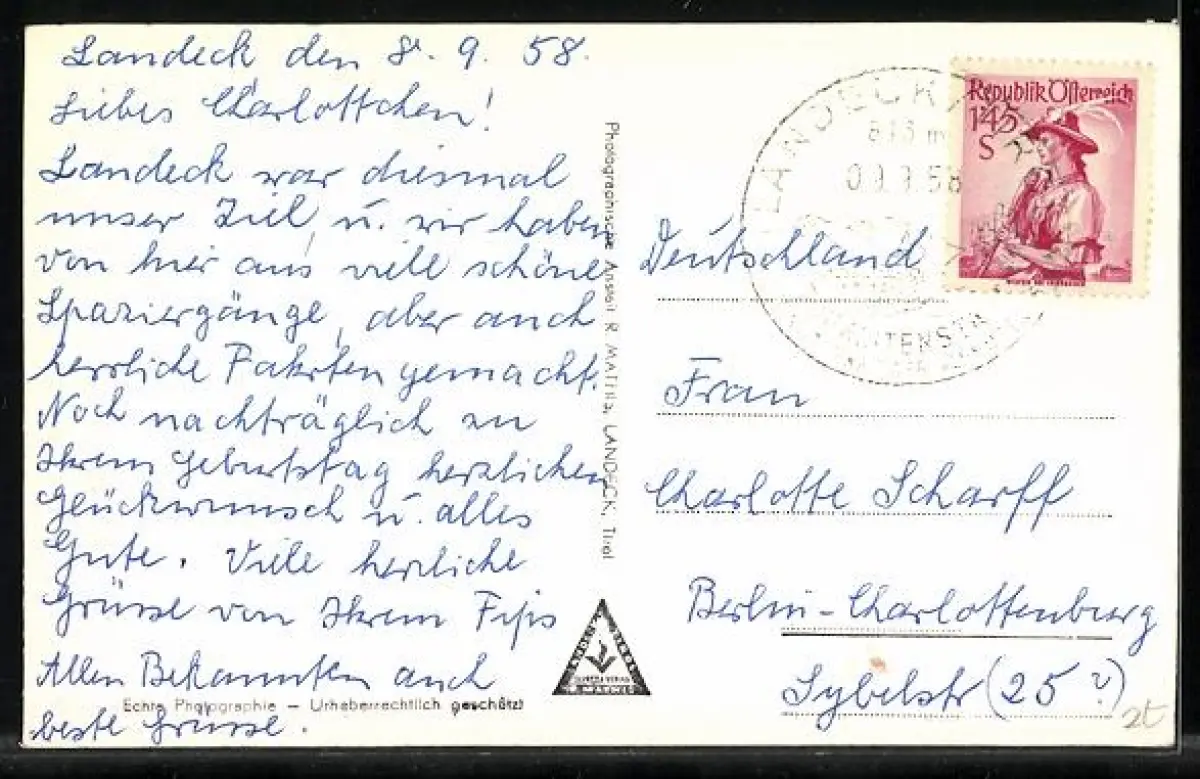 Landeck den 8. 9. 58.
Liebes Charlottchen!
Landeck war diesmal
unser Ziel u. wir haben
von hier aus viele schöne
Spaziergänge, aber auch
herrliche Fahrten gemacht.
Noch nachträglich zu
Ihrem Geburtstag herzlichen
Glückwunsch u. alles
Gute. Viele herzliche
Grüsse von Ihrem Fips
Allen Bekannten auch
beste Grüsse.
Echte Photographie – Urheberrechtlich geschützt
Photographische Anstalt R. MATHIS, LANDECK, Tirol
LANDECK
09.9.58
Republik Österreich
1'45
S
Deutschland
Frau
Charlotte Scharff
Berlin-Charlottenburg
Sybelstr (25?)